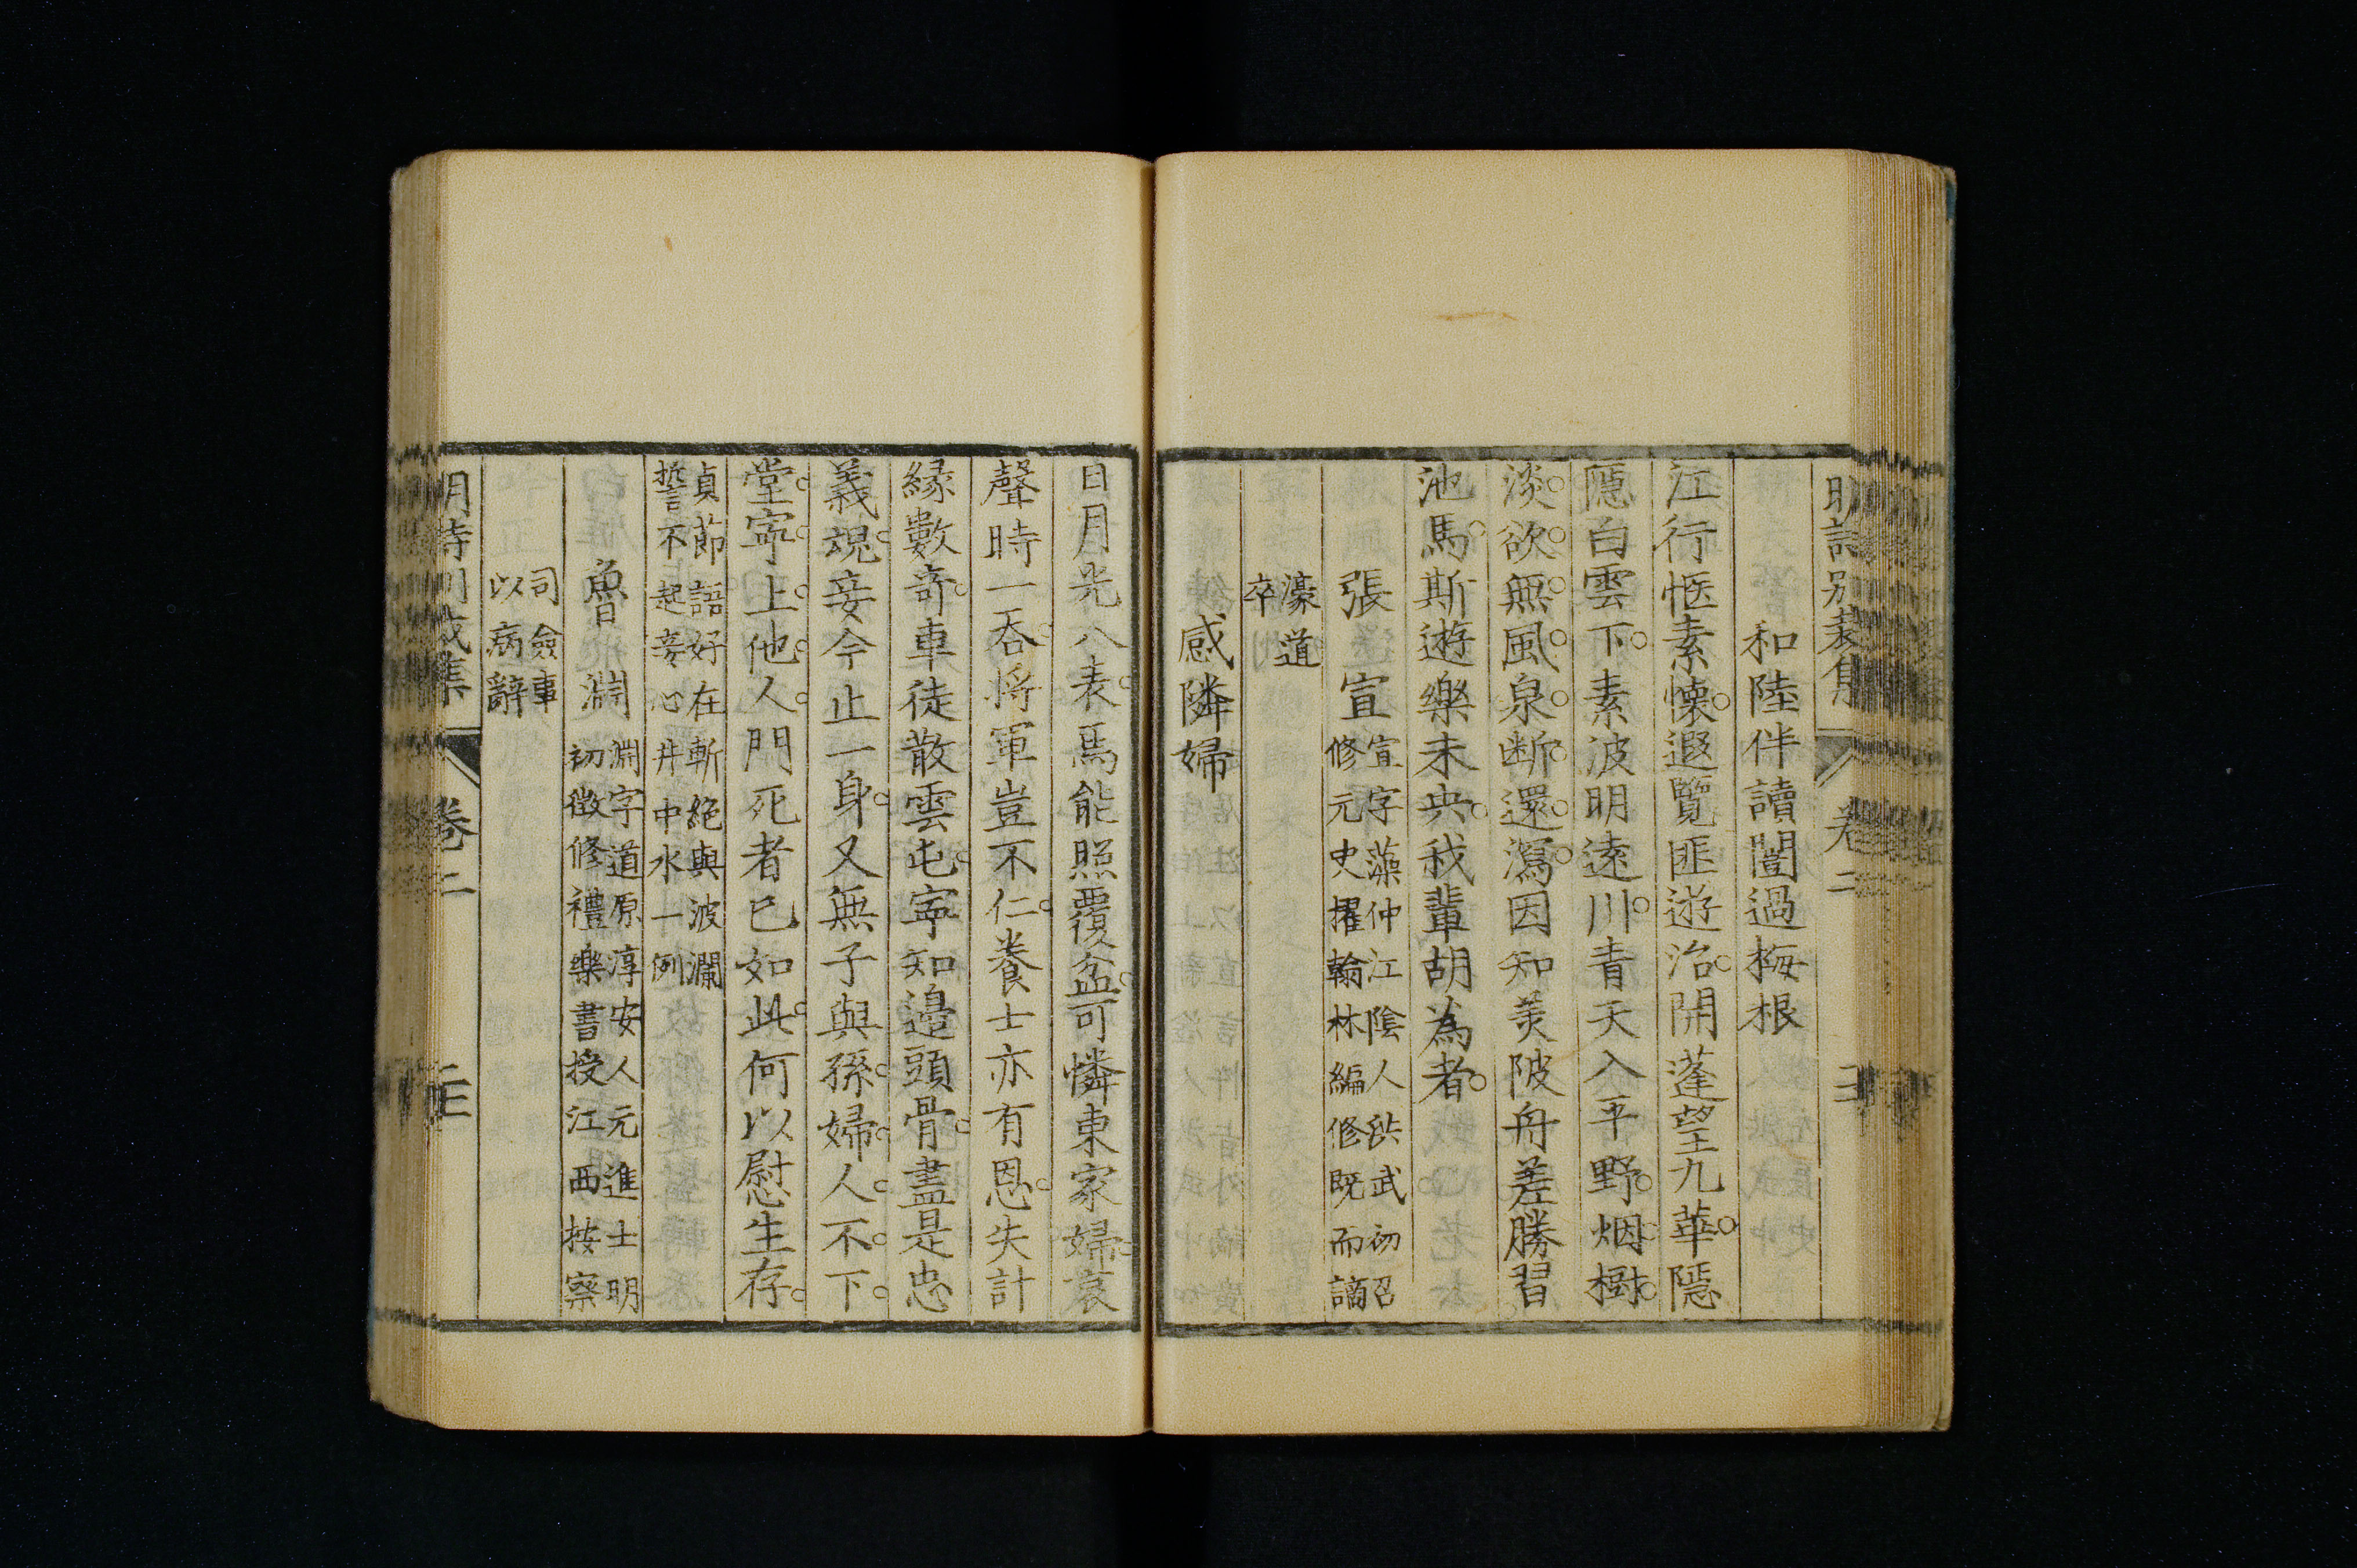 明詩別裁集 卷二 三
和陸伴讀闓過梅根
江行愜素懷遐覽匪遊冶開蓬望九華隱
隱白雲下素波明遠川青天入平野烟樹
淡欲無風泉斷還瀉因知美陂舟差勝習
池馬斯遊樂未央我輩胡為者
張宣宣字藻仲江陰人洪武初召
修元史擢翰林編修既而謫
濠道
卒
感隣婦
日月光八表焉能照覆盆可憐東家婦哀
聲時一吞將軍豈不仁養士亦有恩失計
緣數奇車徒散雲屯寧知邊頭骨盡是忠
義魂妾今止一身又無子與孫婦人不下
堂寧上他人門死者已如此何以慰生存
貞節語好在斬絕與波瀾
誓不起妾心井中水一例
魯淵淵字道原淳安人元進士明
初徵修禮樂書授江西按察
司僉事
以病辭
明詩別裁集 卷二 三